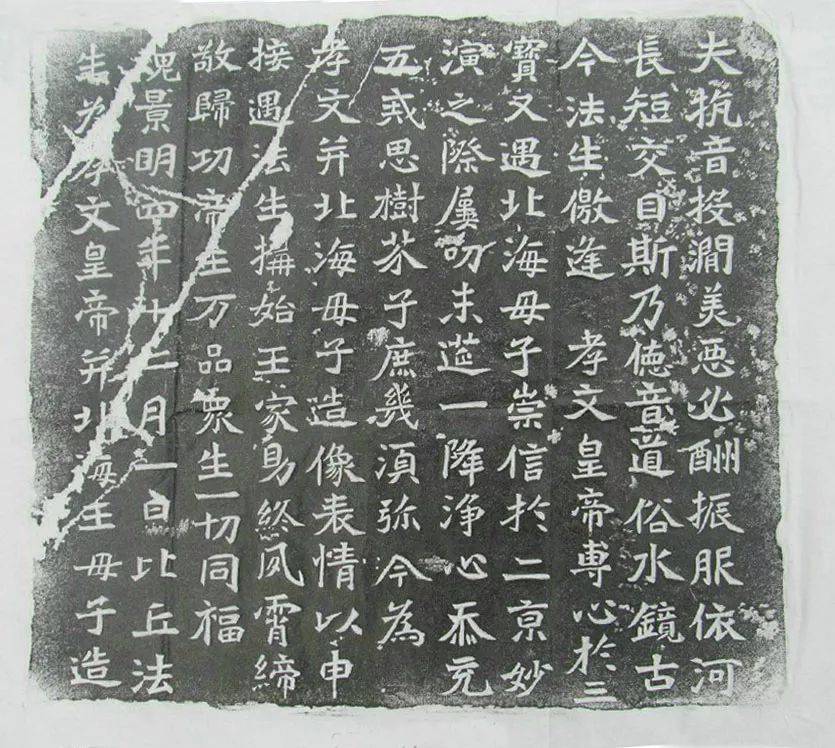 夫抗音投澗美惡必酬振服依河
長短交目斯乃德音道俗水鏡古
今法生儌逢 孝文皇帝專心於三
寶又遇北海母子崇信於二京妙
演之際屢叨末筵一降淨心忝充
五戒思樹芥子庶幾須弥今為
孝文并北海母子造像表情以申
接遇法生搆始王家助終夙霄締
敬歸功帝王万品眾生一切同福
魏景明四年十二月一日比丘法
生為孝文皇帝并北海王母子造